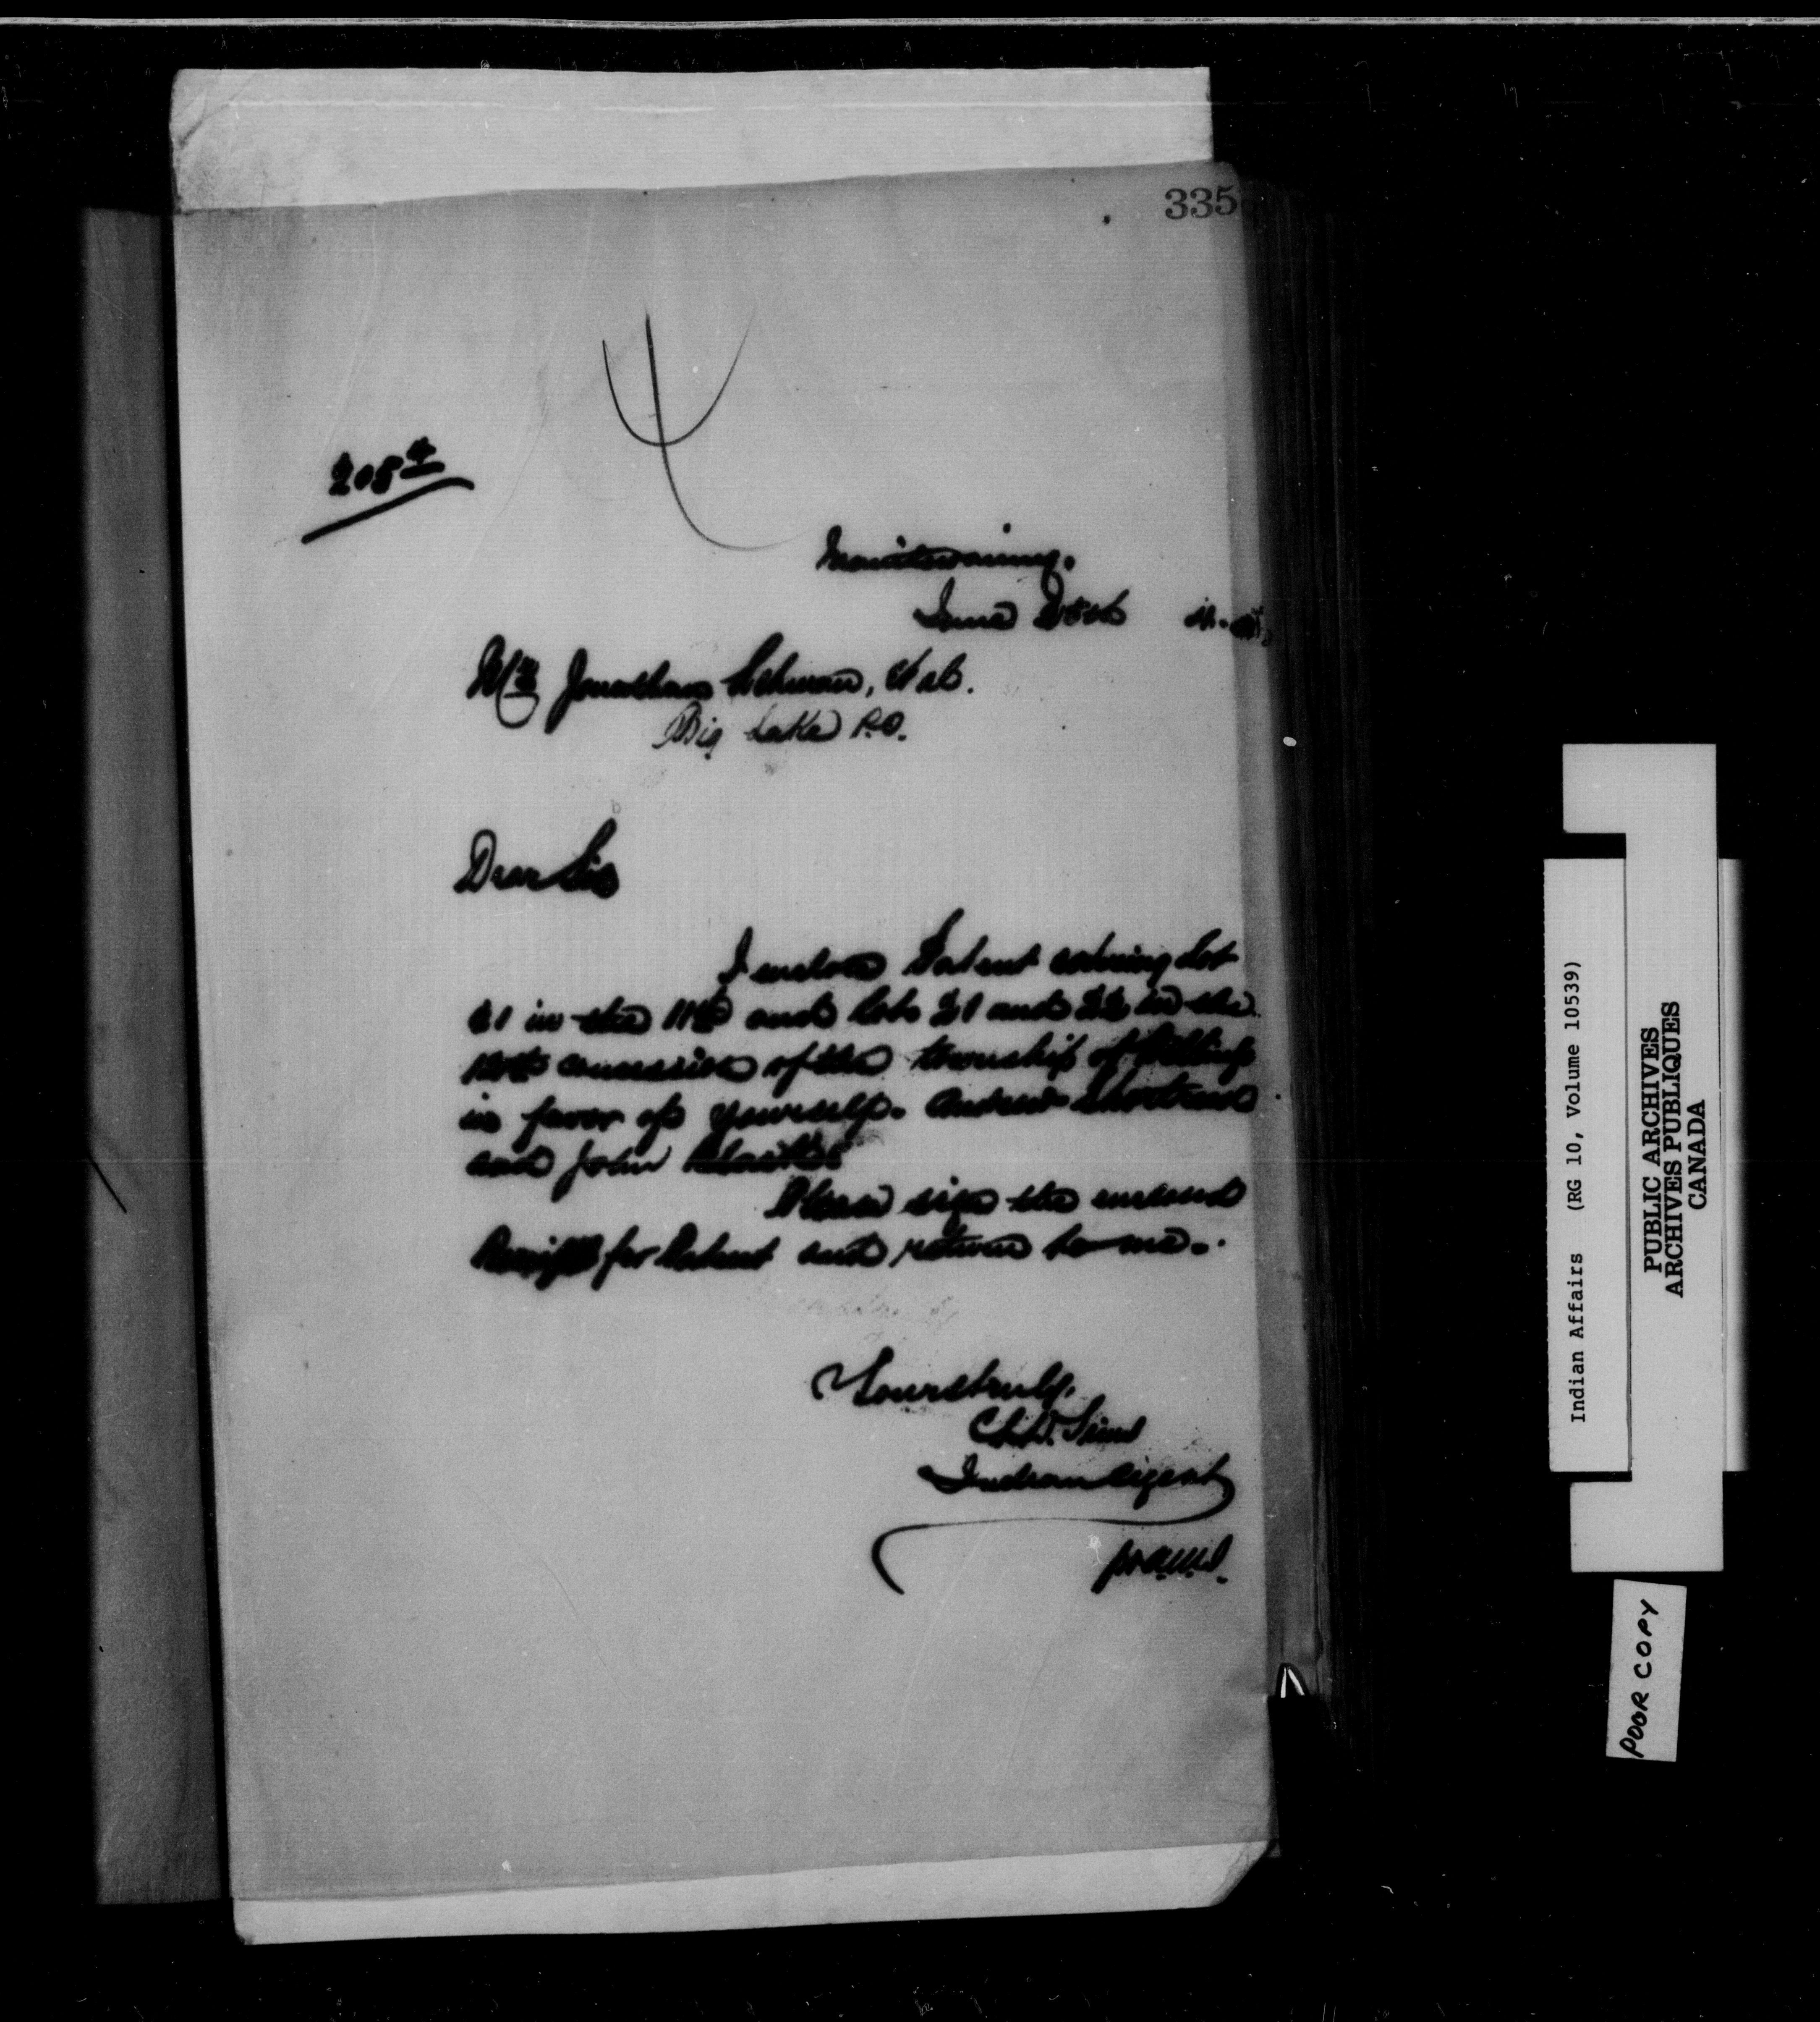 335
Manitowaning.
June 25th
Mr Jonathan
Big Lake P.O.
Dear Sir
I enclose Patent covering Lot
21 in the 11th and Lots 21 and 22 in the
12th concession of the township of Billings
in favor of yourself. Andrew
and John
Please sign the enclosed
Receipt for Patent and return to me.
Yours truly,
Indian Agent
Indian Affairs (RG 10, Volume 10539)
PUBLIC ARCHIVES
ARCHIVES PUBLIQUES
CANADA
POOR COPY